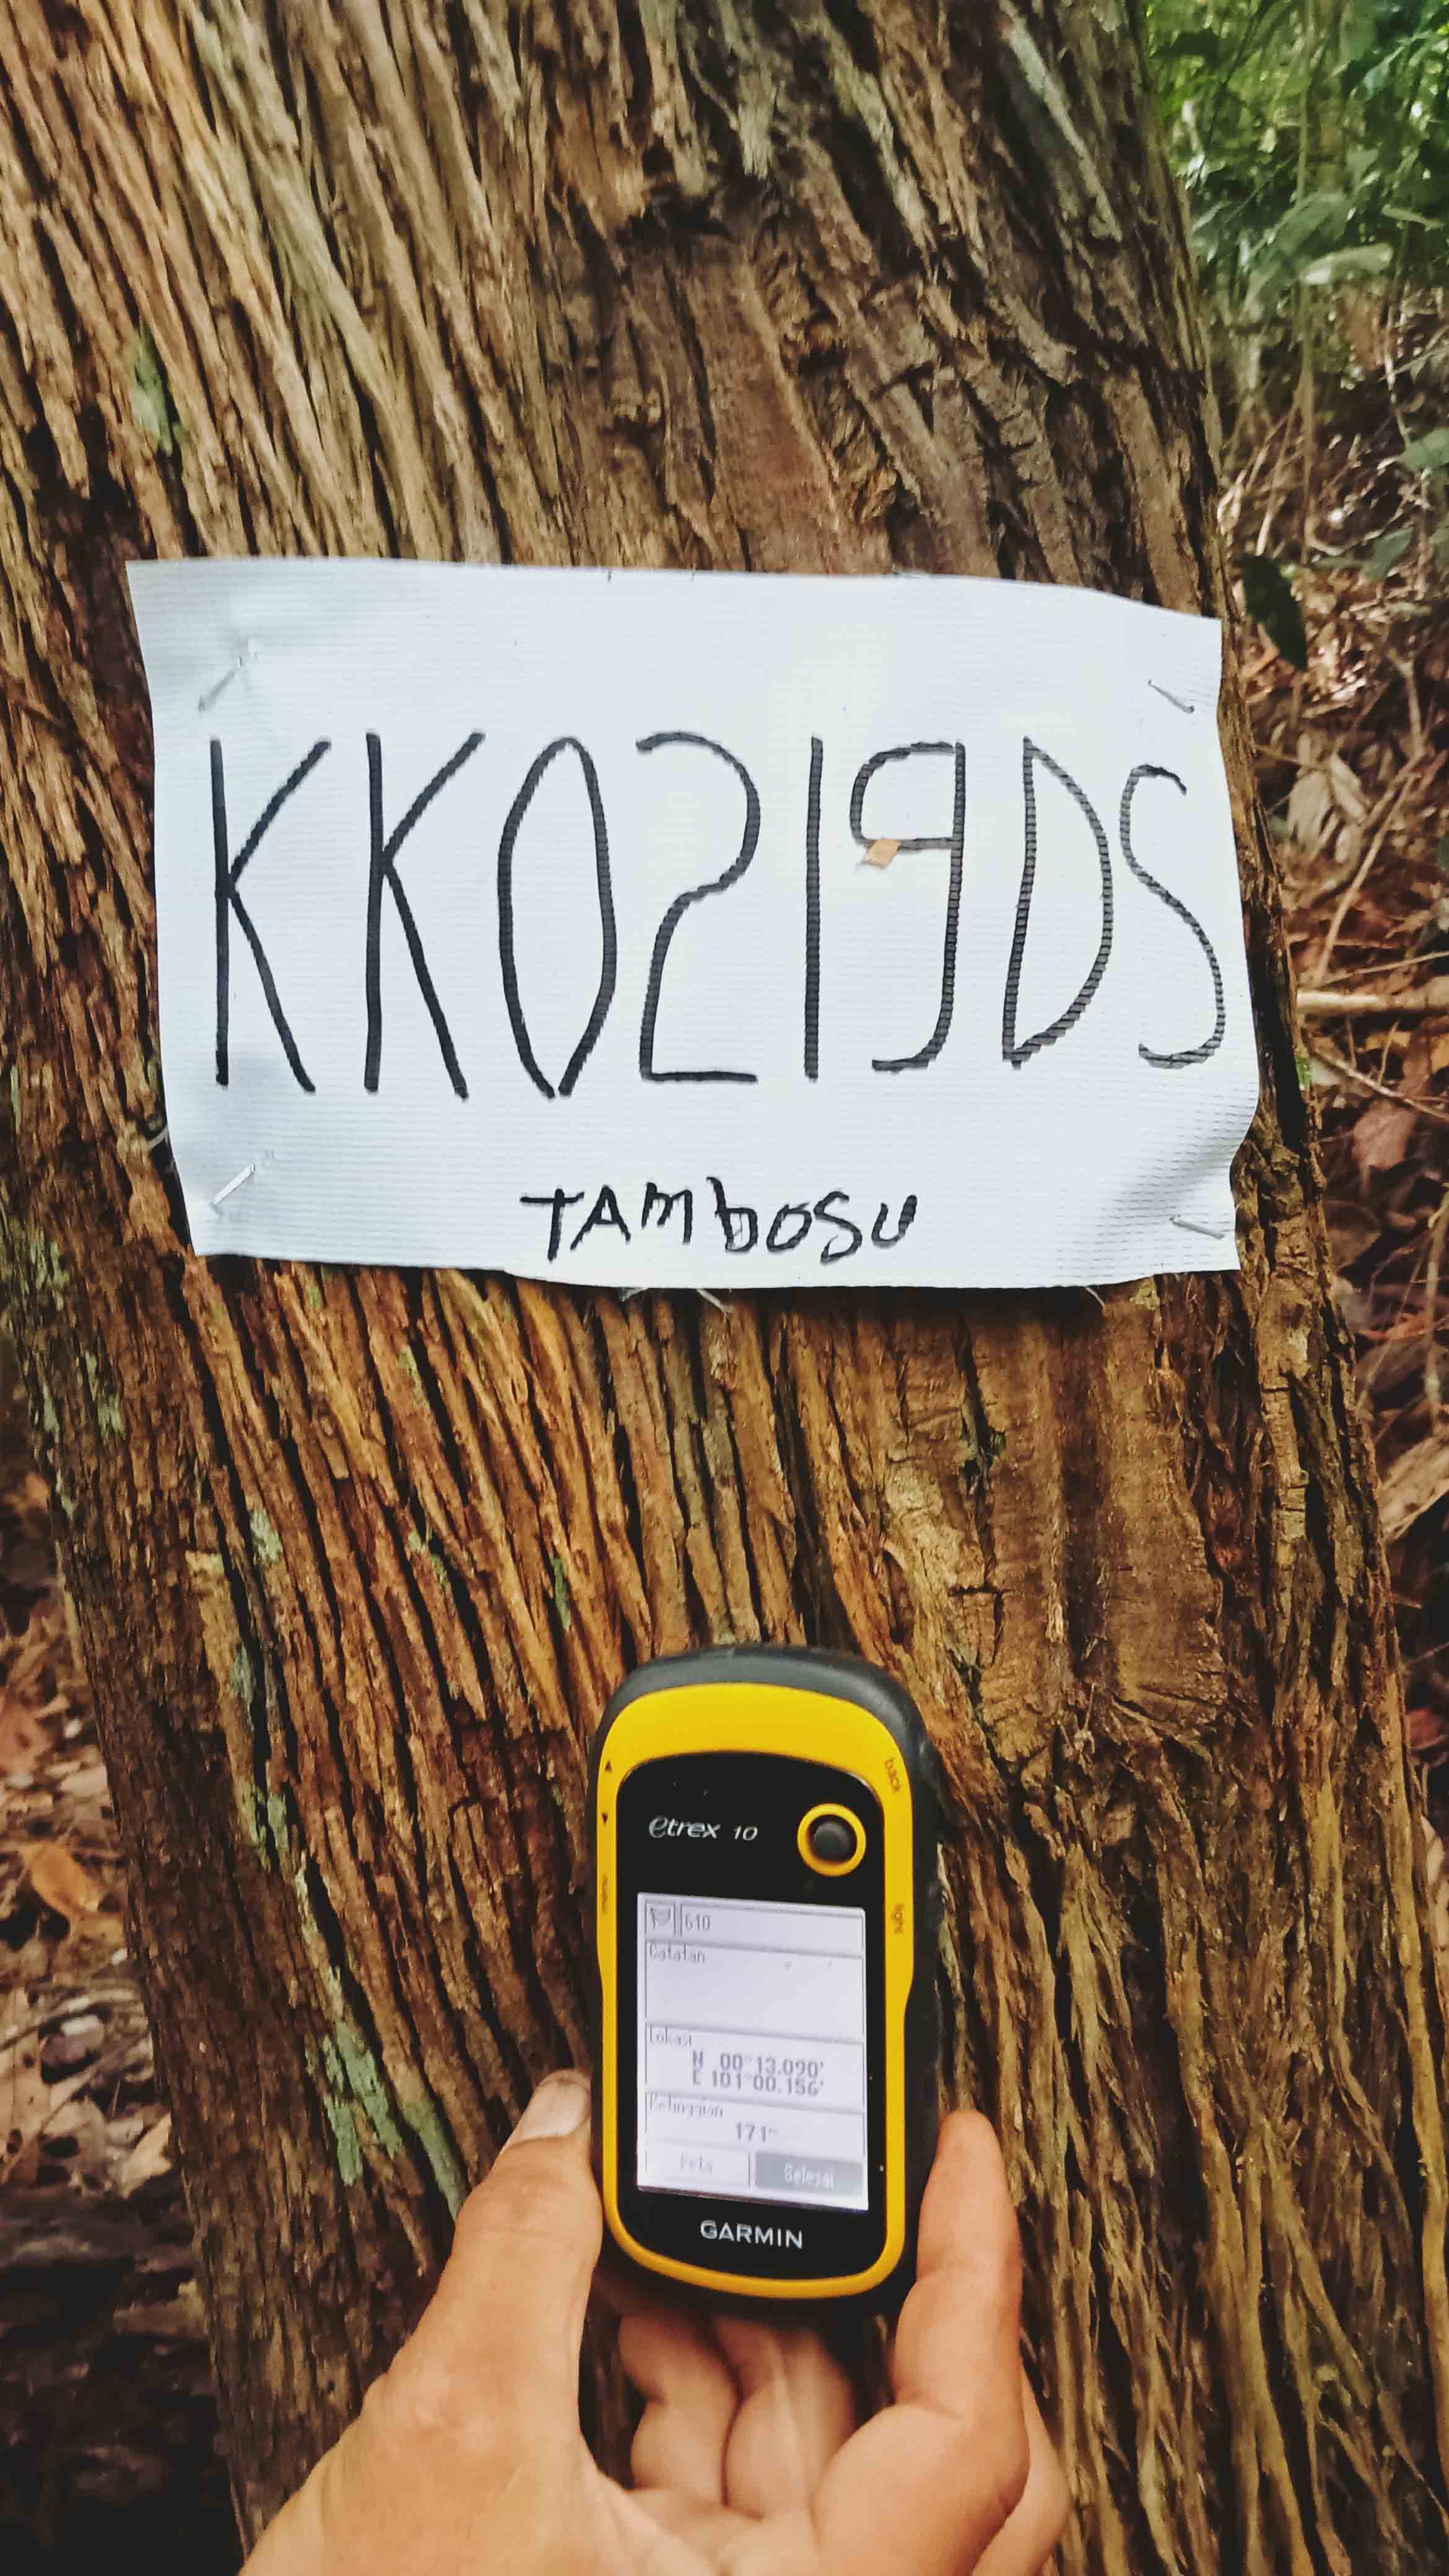 KK0219DS
TAMbOSU
back
etrex 10
light
menu
610
Catatan
Lokasi
N 00°13.090'
E 101°00.156'
Ketinggian
171m
Peta
Selesai
GARMIN